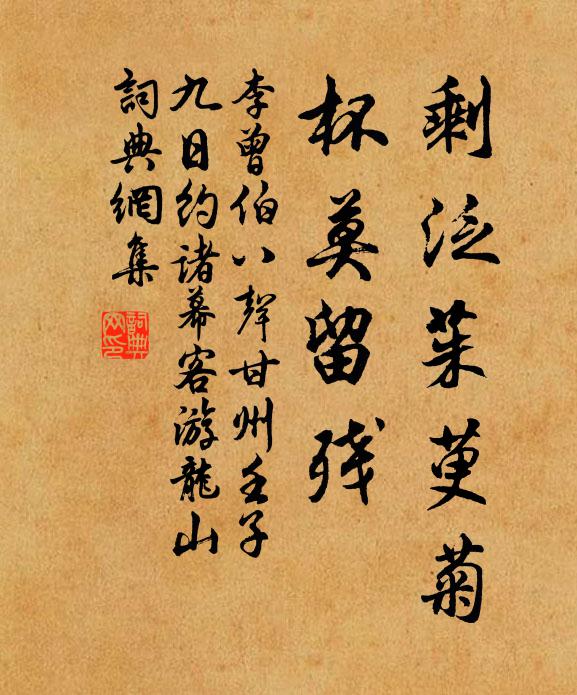 剩泛茱萸菊
杯莫留残
李曾伯八聲甘州壬子
九日约诸幕客游龍山
詞典網集
詞典
网印